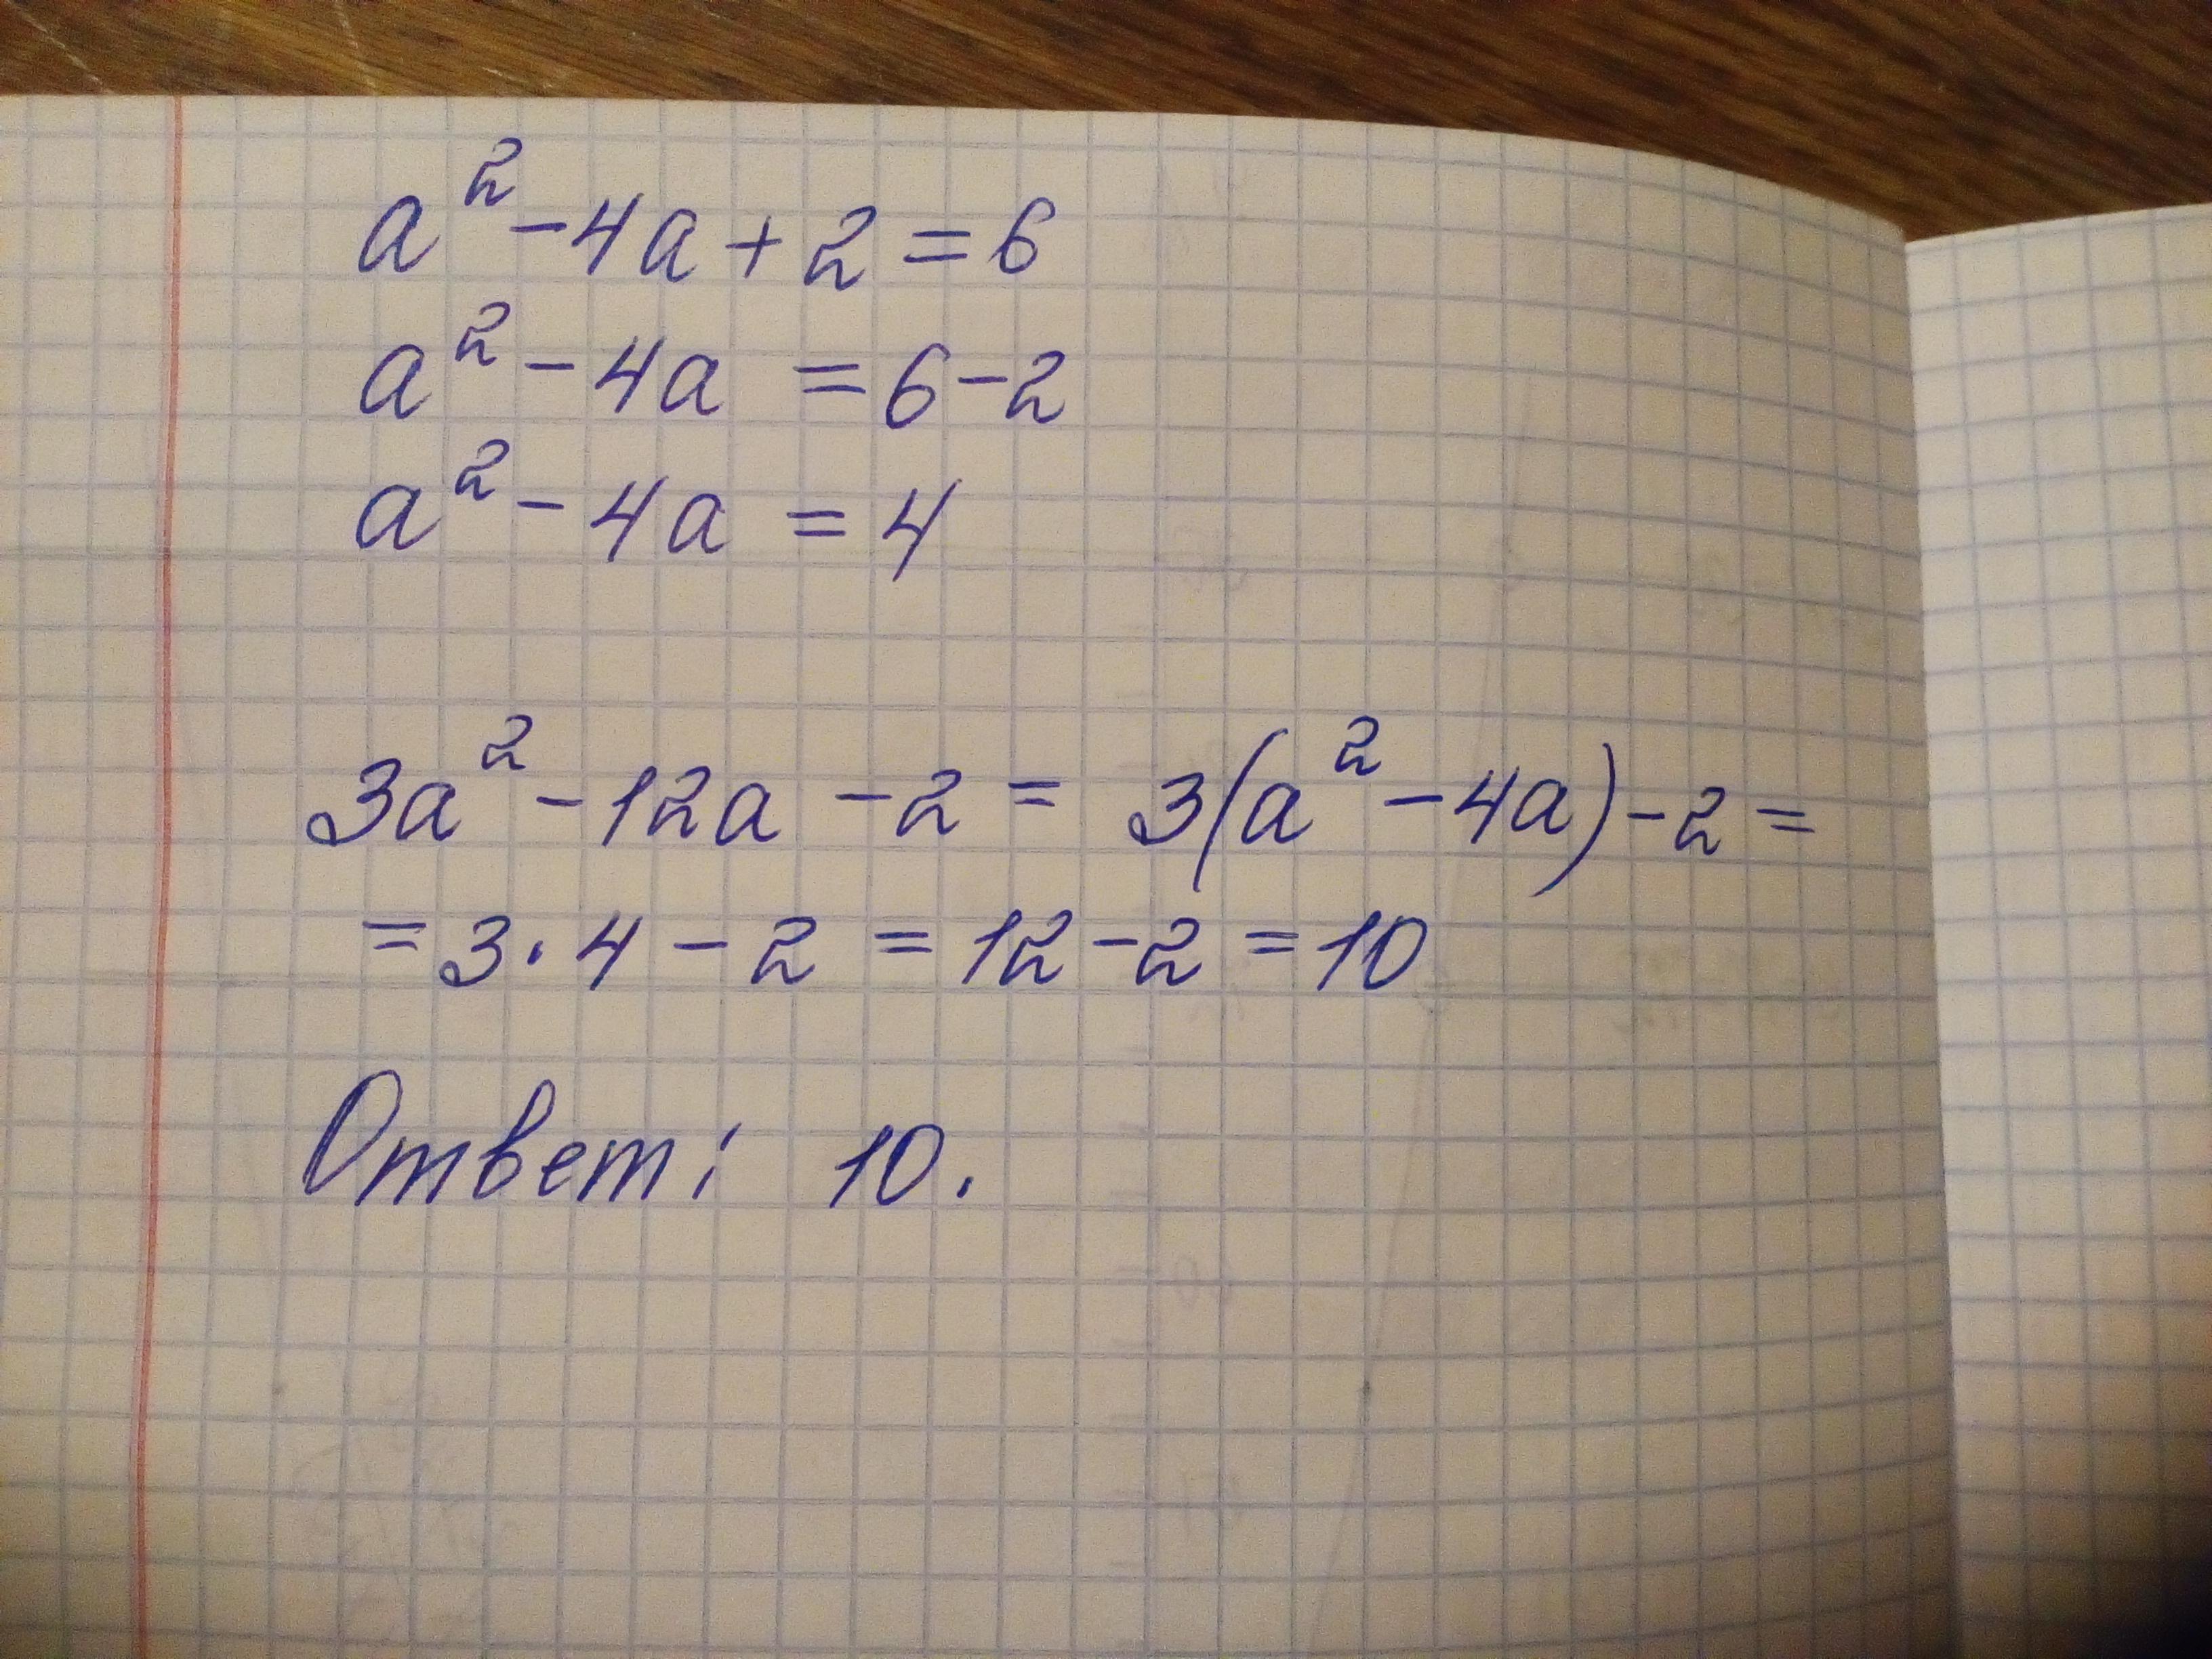 a² - 4a + 2 = 6
a² - 4a = 6 - 2
a² - 4a = 4
3a² - 12a - 2 = 3(a² - 4a) - 2 =
= 3 · 4 - 2 = 12 - 2 = 10
Ответ: 10.